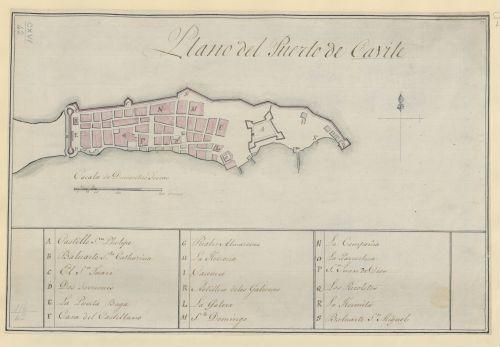 Plano del Puerto de Cavite
Escala de
A Castillo Sn. Phelipe
B Baluarte Sta. Catharina
C El Sn. Juan
D Dos
E La Punta Baja
F Casa del Castellano
G Reales Almacenes
H La Herreria
I
K Astillero delos Galeones
L La Galera
M Sto. Domingo
N La Compañia
O La Parrochia
P Sn. Juan de Dios
Q Los Recoletos
R La Hermita
S Baluarte Sn. Miguel